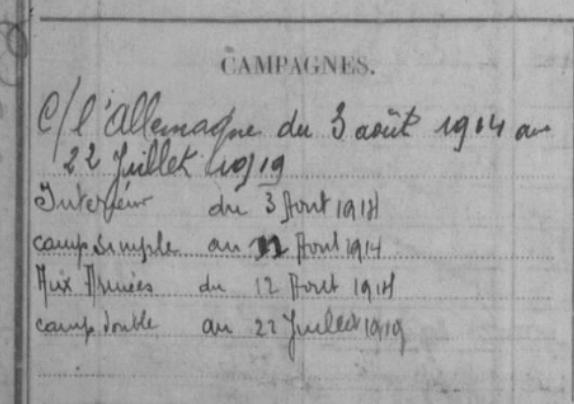 CAMPAGNES.
C/ l'Allemagne du 3 août 1914 au
22 Juillet 1919
Intérieur du 3 Aout 1914
camp simple au 11 Aout 1914
Aux Armées du 12 Aout 1914
camp double au 22 Juillet 1919